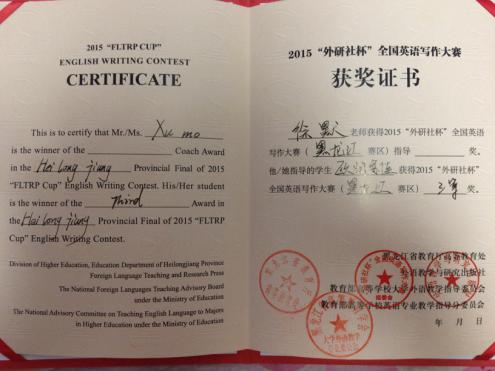 2015 “FLTRP CUP”
ENGLISH WRITING CONTEST
CERTIFICATE
This is to certify that Mr./Ms. Xu mo
is the winner of the Coach Award
in the Hei Long jiang Provincial Final of 2015 “FL
TRP Cup” English Writing Contest. His/Her student
is the winner of the Third Award in
the Hai Long jiang Provincial Final of 2015 “FLTRP
Cup” English Writing Contest.
Division of Higher Education, Education Department of Heilongjiang Province
Foreign Language Teaching and Research Press
The National Foreign Languages Teaching Advisory Board
under the Ministry of Education
The National Advisory Committee on Teaching English Language to Majors
in Higher Education under the Ministry of Education
2015 “外研社杯” 全国英语写作大赛
获奖证书
徐 老师获得2015 “外研社杯” 全国英语
写作大赛（黑龙江 赛区）指导 奖。
他/她指导的学生 获得2015 “外研社杯”
全国英语写作大赛（黑龙江 赛区） 三等 奖。
黑龙江省教育厅高等教育处
外语教学与研究出版社
教育部高等学校大学外语教学指导委员会
教育部高等学校英语专业教学指导分委员会
年 月 日